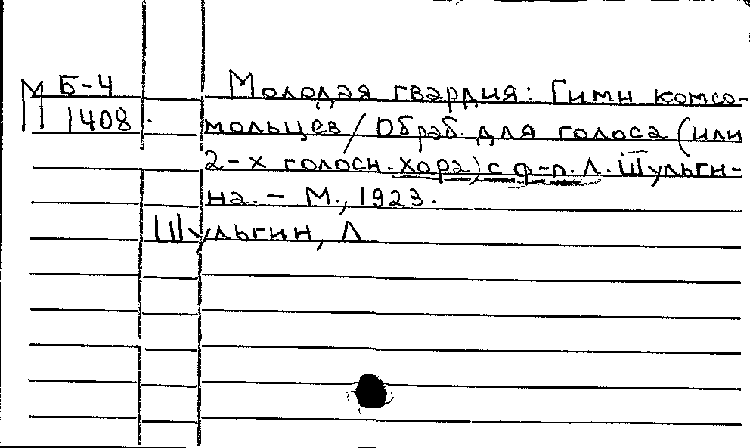 М Б-4
1408.
Молодая гвардия: Гимн комсо-
мольцев / Обраб. для голоса (или
2-х голосн. хора) с ф-п. Л. Шульги-
на. – М., 1923.
Шульгин, Л